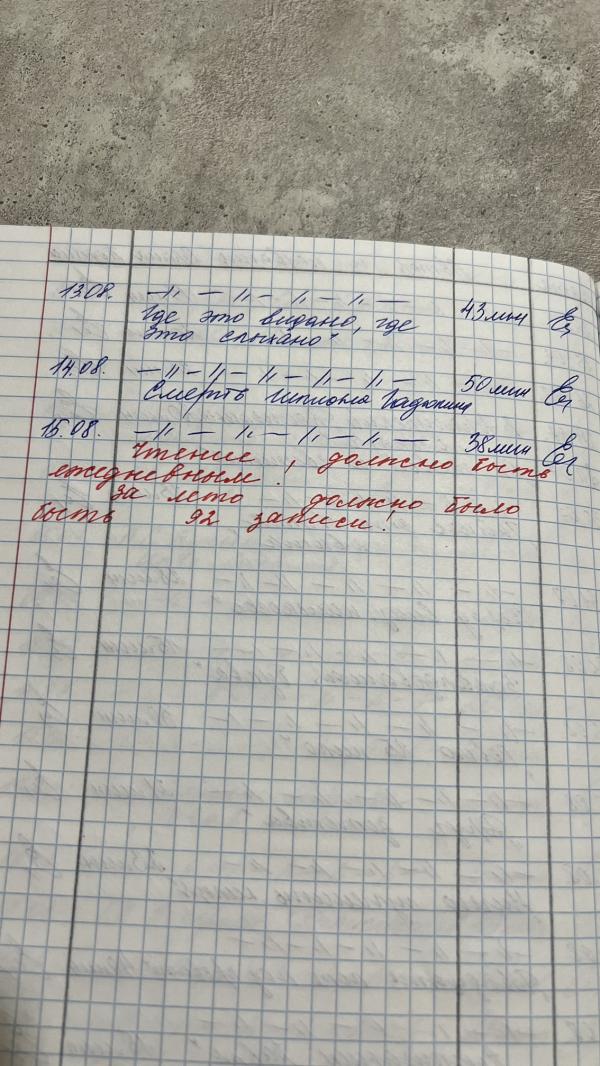 13.08. —〃 — 〃 — 〃 — 〃 —
Где это видано, где 43 мин
это слыхано"
14.08. —〃 — 〃 — 〃 — 〃 — 〃 — 50 мин
Смерть шпиона Гадюкина
15.08. —〃 — 〃 — 〃 — 〃 — 38 мин
Чтение, должно быть
ежедневным!
За лето должно было
быть 92 записи!